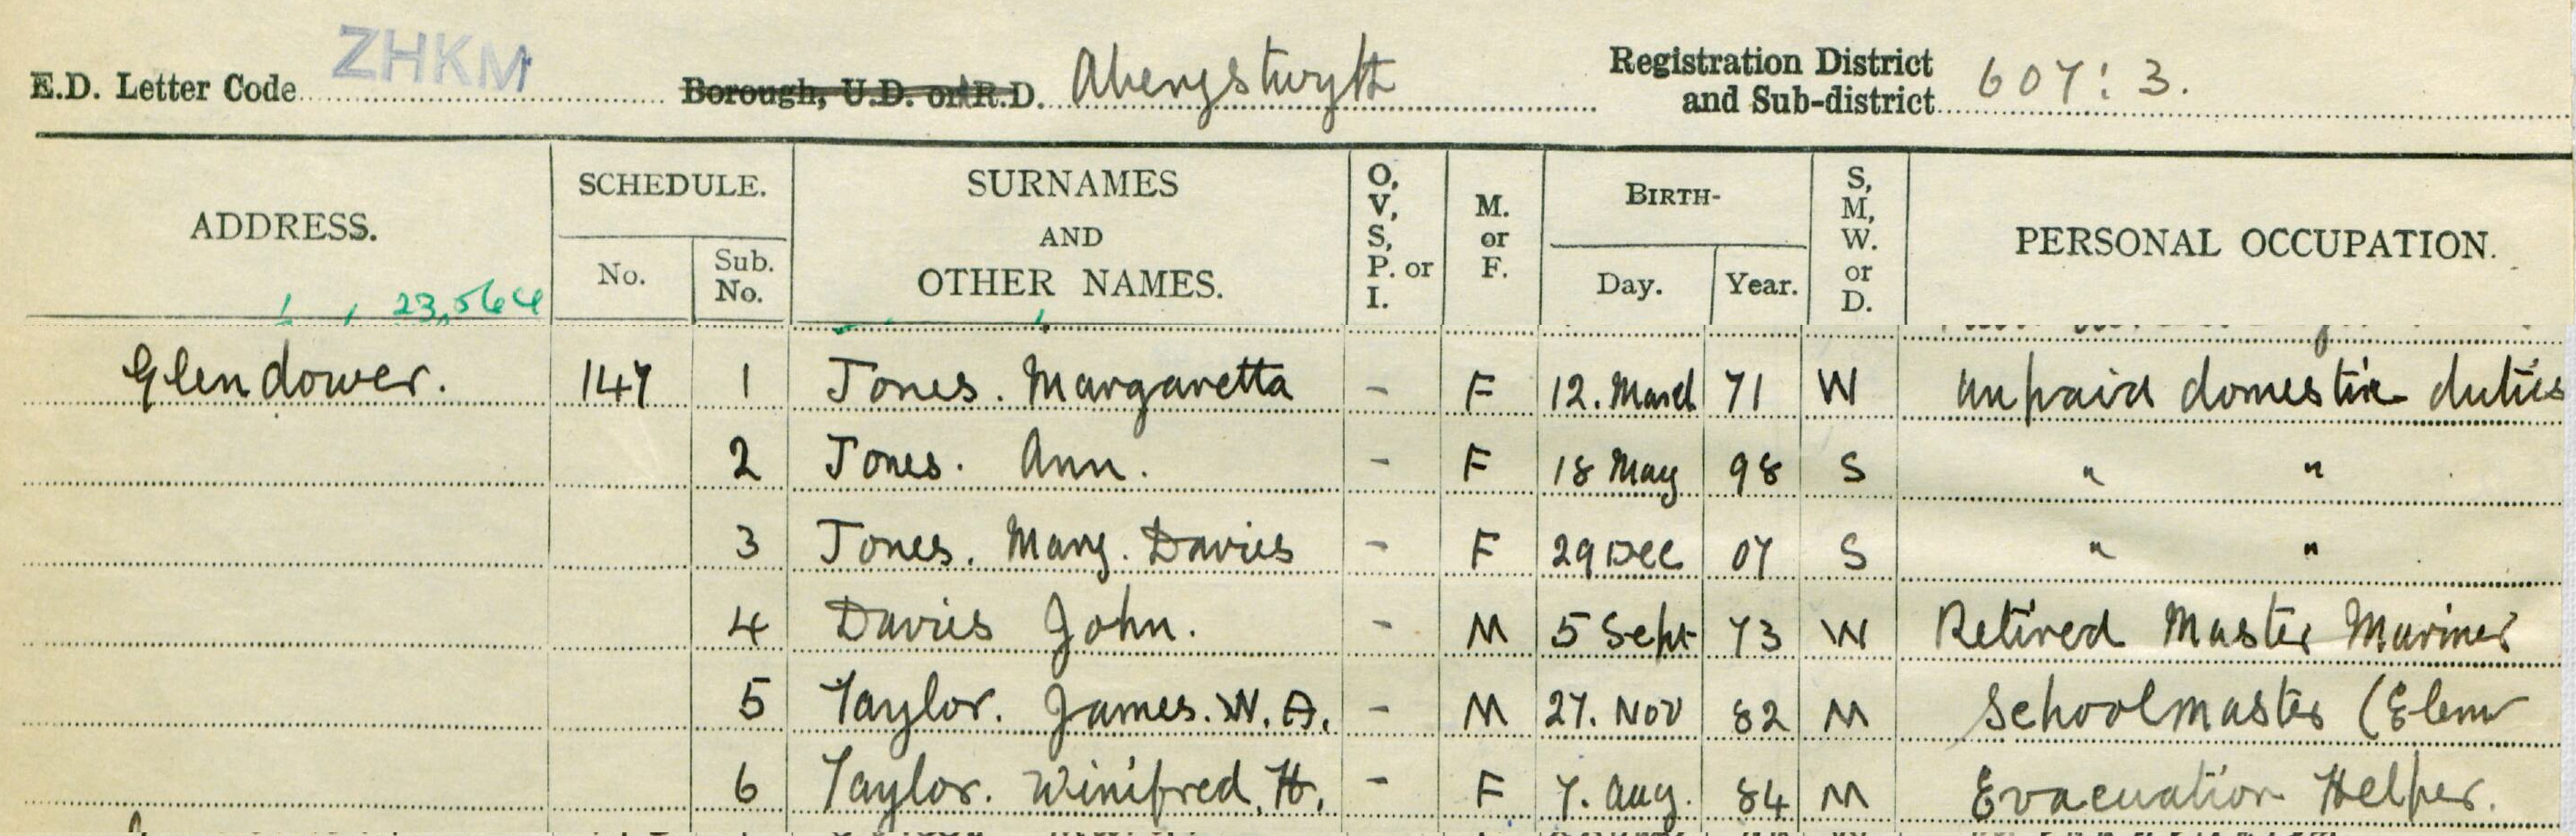 ZHKM
E.D. Letter Code Borough, U.D. or R.D. Aberystwyth Registration District and Sub-district 607: 3.
ADDRESS. SCHEDULE. No. Sub. No. SURNAMES AND OTHER NAMES. O, V, S, P. or I. M. or F. BIRTH- Day. Year. S, M, W. or D. PERSONAL OCCUPATION.
23,564
Glendower. 147 1 Jones. Margaretta - F 12. March 71 W unpaid domestic duties
2 Jones. Ann. - F 18 May 98 S " "
3 Jones. Mary. Davies - F 29 Dec 07 S " "
4 Davies John. - M 5 Sept 73 W Retired Master Mariner
5 Taylor. James. W. A. - M 27. Nov 82 M Schoolmaster (Elem
6 Taylor. Winifred. H. - F 7. Aug. 84 M Evacuation Helper.